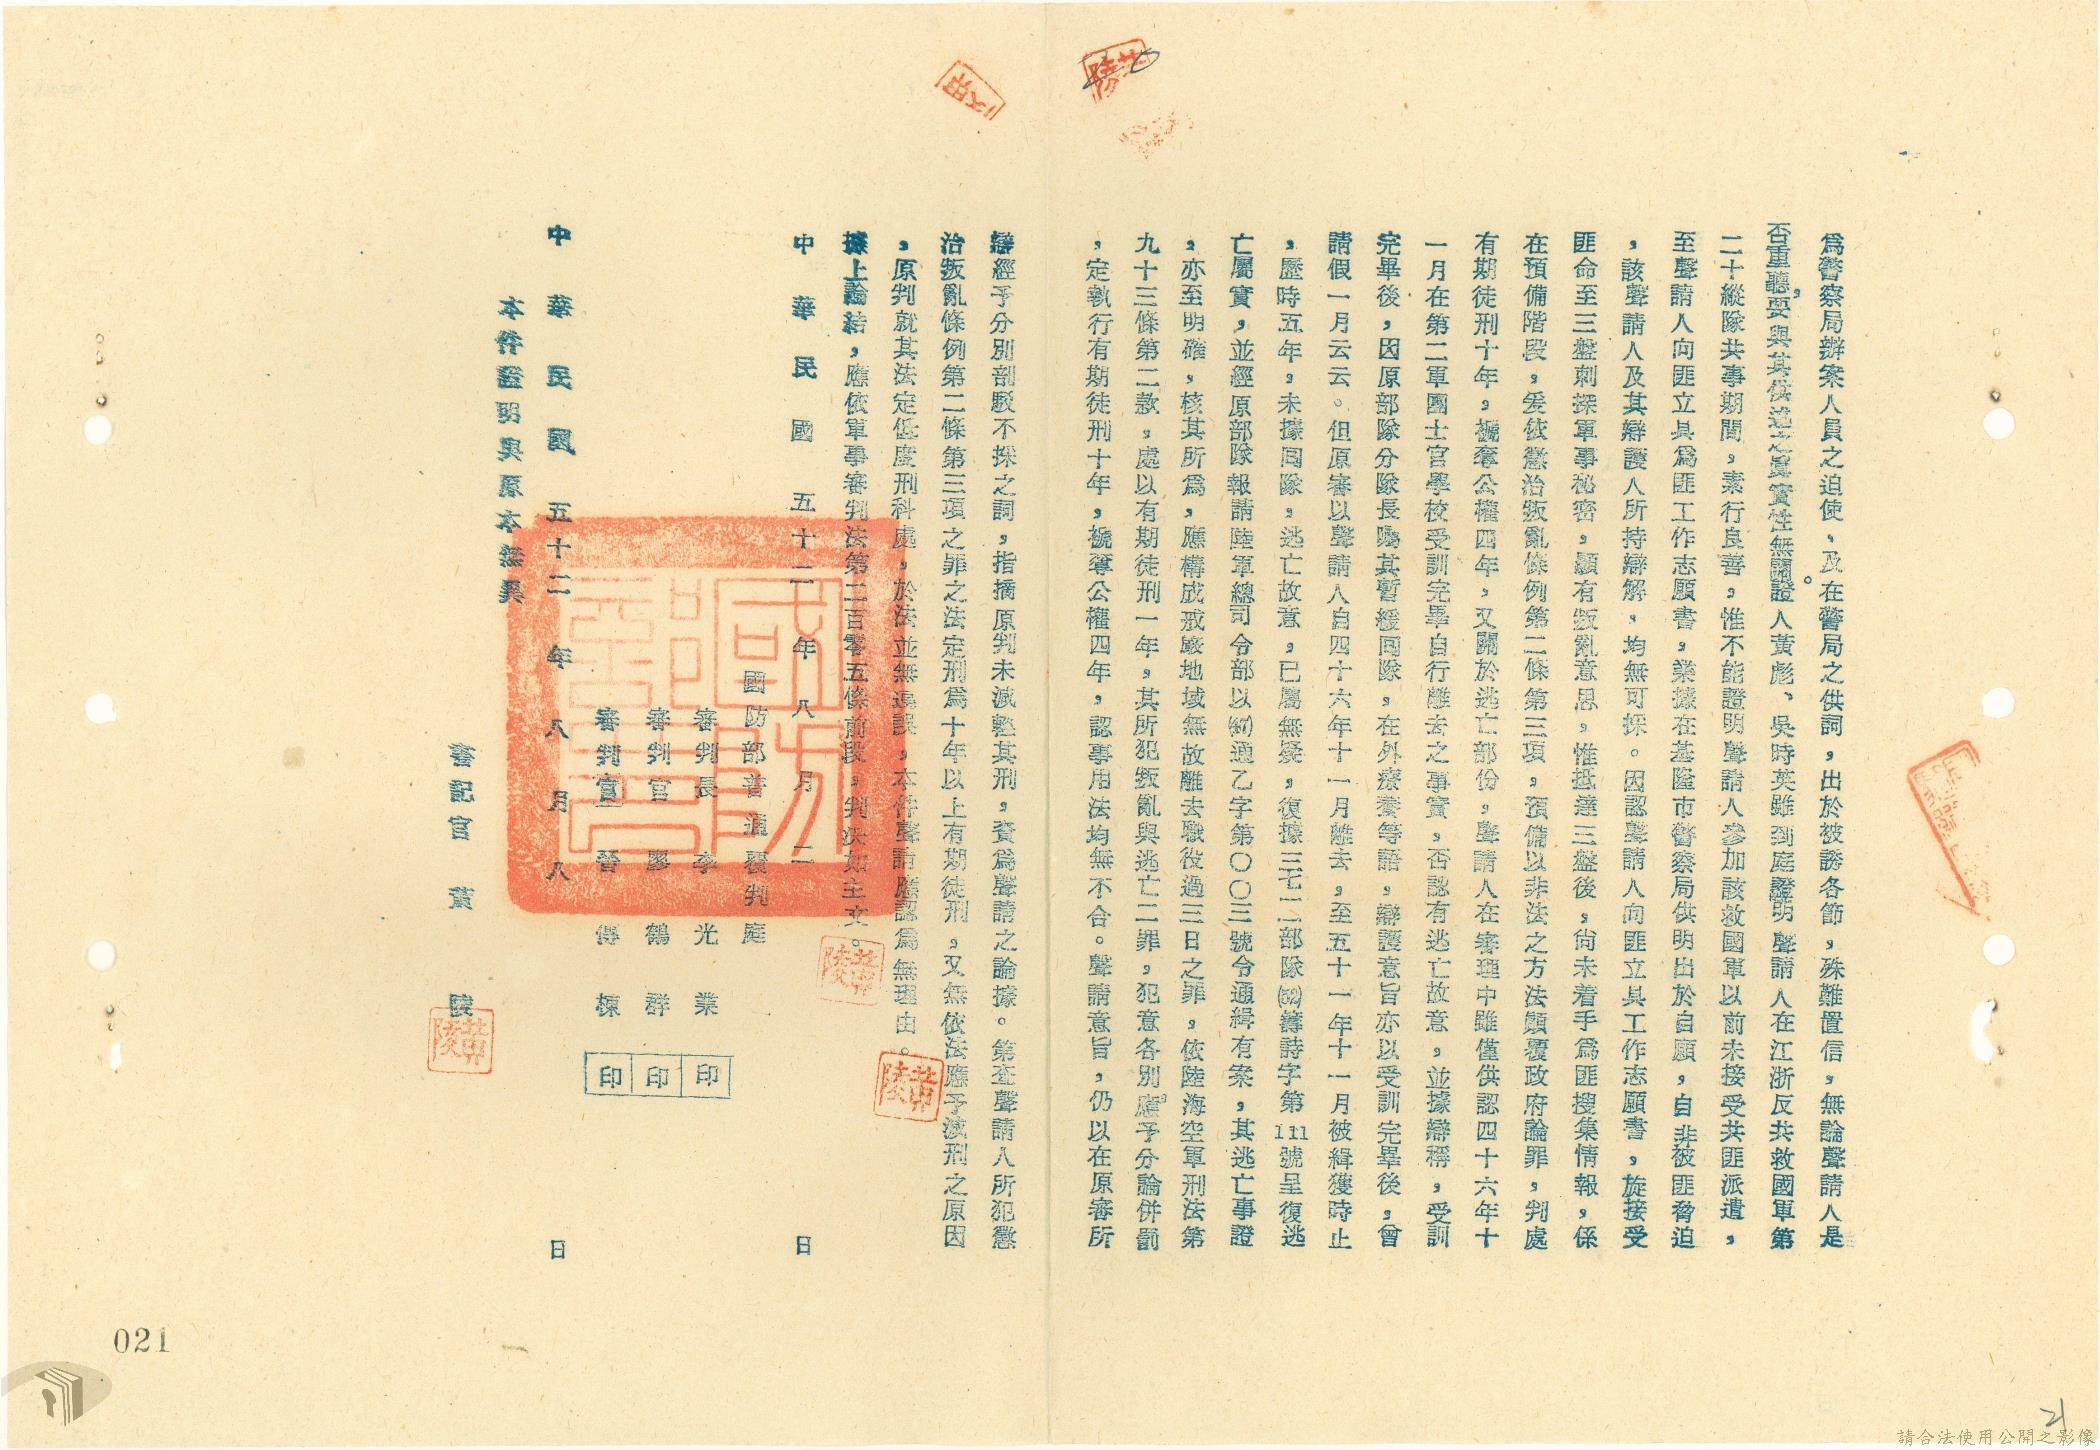 為警察局辦案人員之迫使、及在警局之供詞，出於被誘各節，殊難置信，無論聲請人是
否重聽，要與其供述之真實性無關。證人黃彪、吳時英雖到庭證明聲請人在江浙反共救國軍第
二十縱隊共事期間，素行良善，惟不能證明聲請人參加該救國軍以前未接受共匪派遣，
至聲請人向匪立具為匪工作志願書，業據在基隆市警察局供明出於自願，自非被匪脅迫
，該聲請人及其辯護人所持辯解，均無可採。因認聲請人向匪立具工作志願書，旋接受
匪命至三盤刺探軍事秘密，顯有叛亂意思，惟抵達三盤後，尚未着手為匪搜集情報，係
在預備階段，爰依懲治叛亂條例第二條第三項，預備以非法之方法顛覆政府論罪，判處
有期徒刑十年，褫奪公權四年，又關於逃亡部份，聲請人在審理中雖僅供認四十六年十
一月在第二軍團士官學校受訓完畢自行離去之事實，否認有逃亡故意，並據辯稱，受訓
完畢後，因原部隊分隊長囑其暫緩回隊，在外療養等語，辯護意旨亦以受訓完畢後，曾
請假一月云云。但原審以聲請人自四十六年十一月離去，至五十一年十一月被緝獲時止
，歷時五年，未據回隊，逃亡故意，已屬無疑，復據三七二部隊(52)籌詩字第111號呈復逃
亡屬實，並經原部隊報請陸軍總司令部以(47)通乙字第〇〇三號令通緝有案，其逃亡事證
，亦至明確，核其所為，應構成戒嚴地域無故離去職役過三日之罪，依陸海空軍刑法第
九十三條第二款，處以有期徒刑一年，其所犯叛亂與逃亡二罪，犯意各別，應予分論併罰
，定執行有期徒刑十年，褫奪公權四年，認事用法均無不合。聲請意旨，仍以在原審所
辯經予分別剖駁不採之詞，指摘原判未減輕其刑，資為聲請之論據。第查聲請人所犯懲
治叛亂條例第二條第三項之罪之法定刑為十年以上有期徒刑，又無依法應予減刑之原因
，原判就其法定低度刑科處，於法並無違誤，本件聲請應認為無理由。
據上論結，應依軍事審判法第二百零五條前段，判決如主文。
中華民國五十二年八月二日
國防部普通覆判庭
審判長 李光業 印
審判官 廖鶴群 印
審判官 晉傳棟 印
中華民國五十二年八月八日
本件證明與原本無異
書記官 黃陵
黃陵
黃陵
黃陵
國防部印
021
21
請合法使用公開之影像